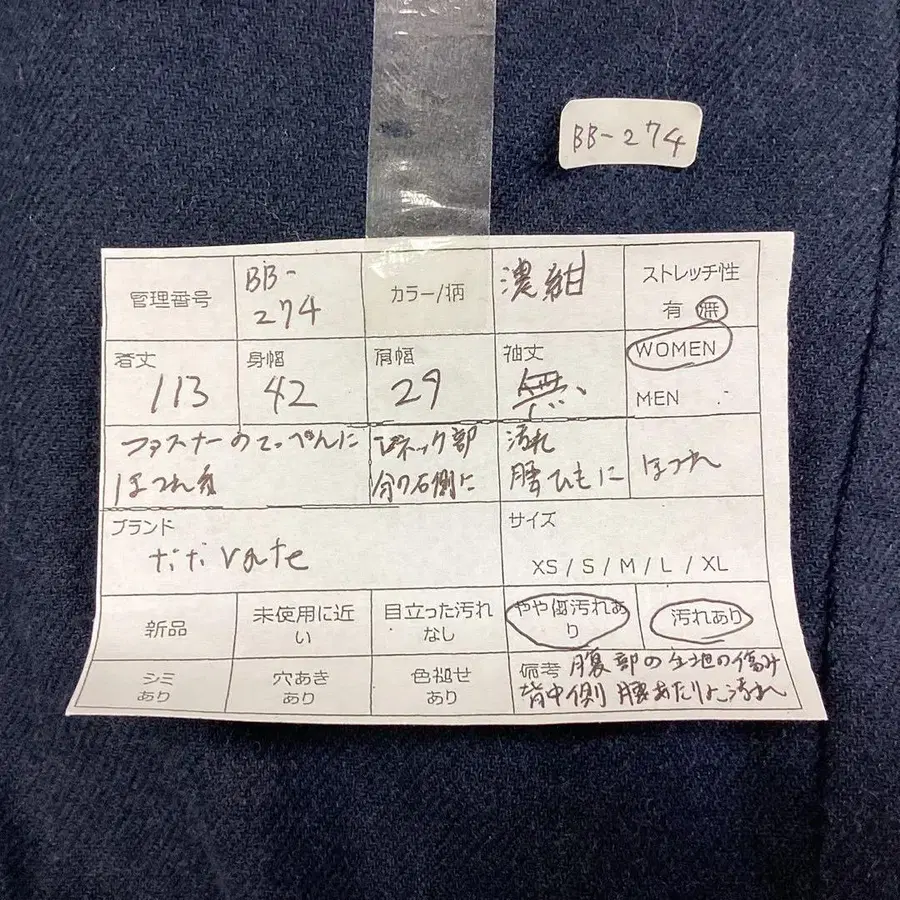 BB-274
管理番号
BB-
274
カラー/柄
濃紺
ストレッチ性
有 無
着丈
113
身幅
42
肩幅
29
袖丈
無
WOMEN
MEN
ファスナーのてっぺんに
ほつれ有
Vネック部
分の右側に
汚れ
腰ひもに
ほつれ
ブランド
titivate
サイズ
XS / S / M / L / XL
新品
未使用に近
い
目立った汚れ
なし
やや傷汚れあ
り
汚れあり
シミ
あり
穴あき
あり
色褪せ
あり
備考 腹部の生地の傷み
背中側 腰あたりに汚れ